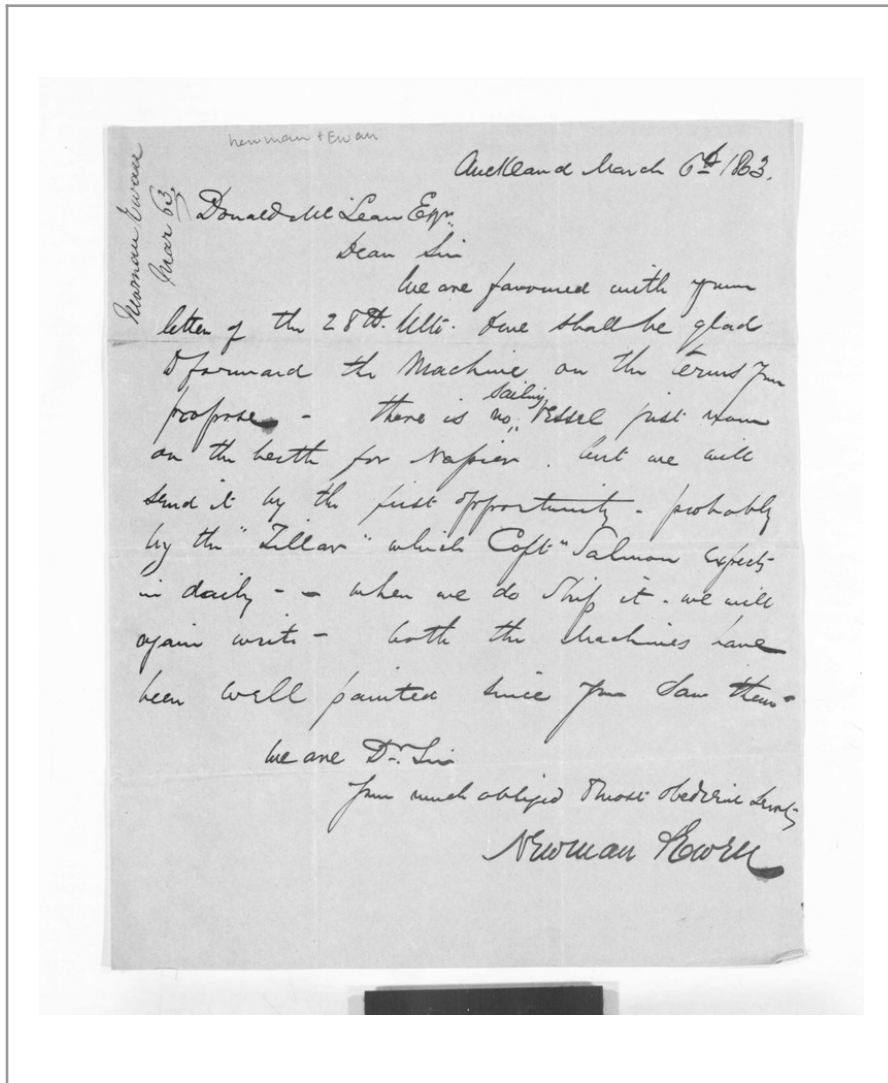 newman + Ewan
Newman Ewan
Mar 63.
Auckland March 6th 1863.
Donald McLean Esqr.
Dear Sir
We are favoured with your
letter of the 28th. Ulto. & we shall be glad
to forward the Machine on the terms you
propose - there is no sailing Vessel just now
on the berth for Napier. but we will
send it by the first opportunity - probably
by the "Zillah" which Captn Salmon expects
in daily - - when we do ship it - we will
again write - both the Machines have
been well painted since you saw them -
We are Dr. Sir
Your much obliged & most obedient Servts
Newman & Ewen